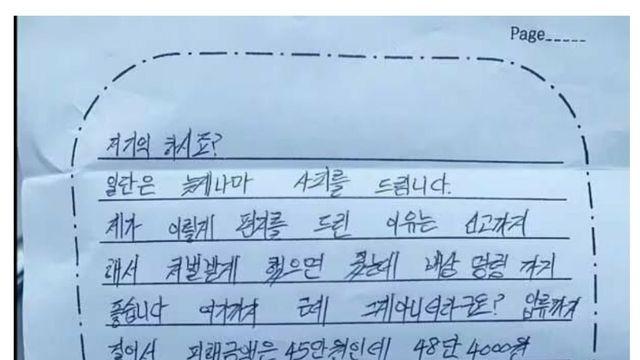 Page_____
저기억 하시죠?
일단은 늦게나마 사죄를 드립니다.
제가 이렇게 편지를 드린 이유는 선고까지
해서 처벌받게 했으면 됐는데 배상 명령 까지
좋습니다 여기까지 근데 그게아니더라구요? 압류까지
걸어서 피해금액은 45만원인데 48만 4000원